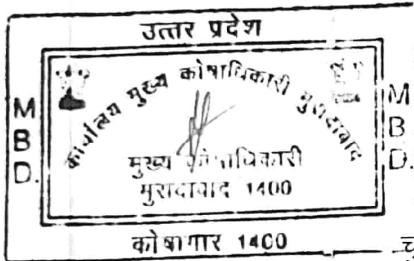 उत्तर प्रदेश
कार्यालय मुख्य कोषाधिकारी मुरादाबाद
M B D.
मुख्य कोषाधिकारी
मुरादाबाद 1400
M B D.
कोषागार 1400